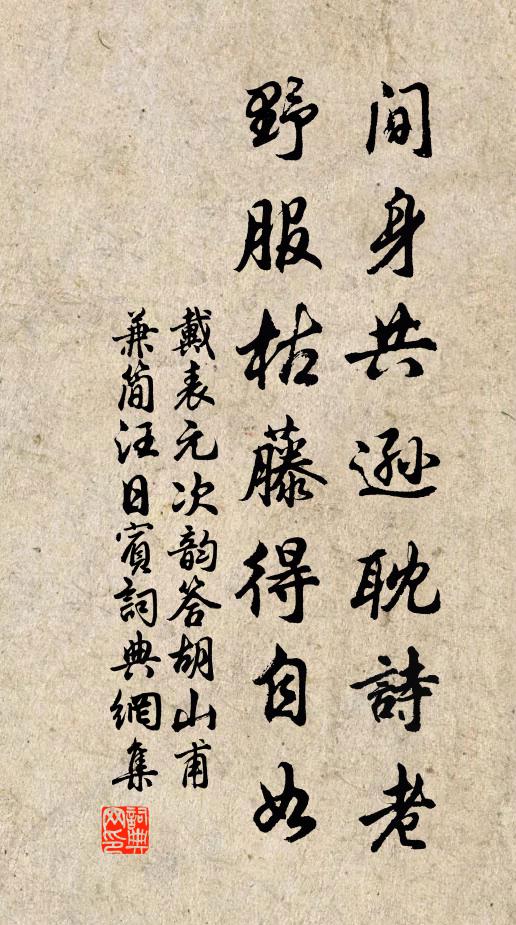 间身共遜耽詩老
野服枯藤得自如
戴表元次韵答胡山甫
兼简汪日賓詞典網集
詞典网印